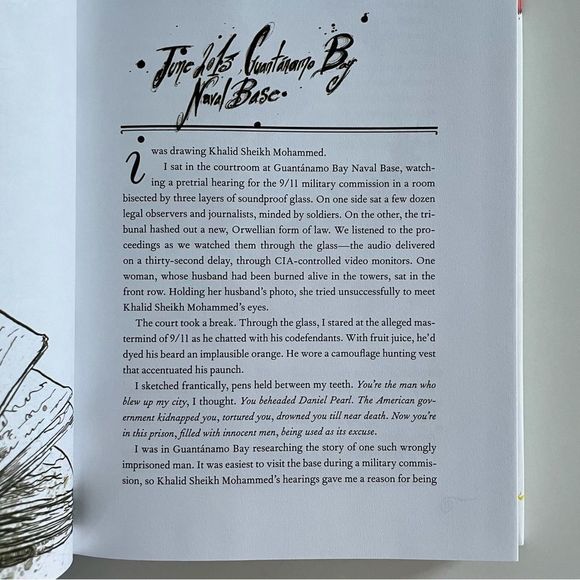 June 2013, Guantánamo Bay
Naval Base.
i was drawing Khalid Sheikh Mohammed.
I sat in the courtroom at Guantánamo Bay Naval Base, watch-
ing a pretrial hearing for the 9/11 military commission in a room
bisected by three layers of soundproof glass. On one side sat a few dozen
legal observers and journalists, minded by soldiers. On the other, the tri-
bunal hashed out a new, Orwellian form of law. We listened to the pro-
ceedings as we watched them through the glass—the audio delivered
on a thirty-second delay, through CIA-controlled video monitors. One
woman, whose husband had been burned alive in the towers, sat in the
front row. Holding her husband's photo, she tried unsuccessfully to meet
Khalid Sheikh Mohammed's eyes.
The court took a break. Through the glass, I stared at the alleged mas-
termind of 9/11 as he chatted with his codefendants. With fruit juice, he'd
dyed his beard an implausible orange. He wore a camouflage hunting vest
that accentuated his paunch.
I sketched frantically, pens held between my teeth. You're the man who
blew up my city, I thought. You beheaded Daniel Pearl. The American gov-
ernment kidnapped you, tortured you, drowned you till near death. Now you're
in this prison, filled with innocent men, being used as its excuse.
I was in Guantánamo Bay researching the story of one such wrongly
imprisoned man. It was easiest to visit the base during a military commis-
sion, so Khalid Sheikh Mohammed's hearings gave me a reason for being